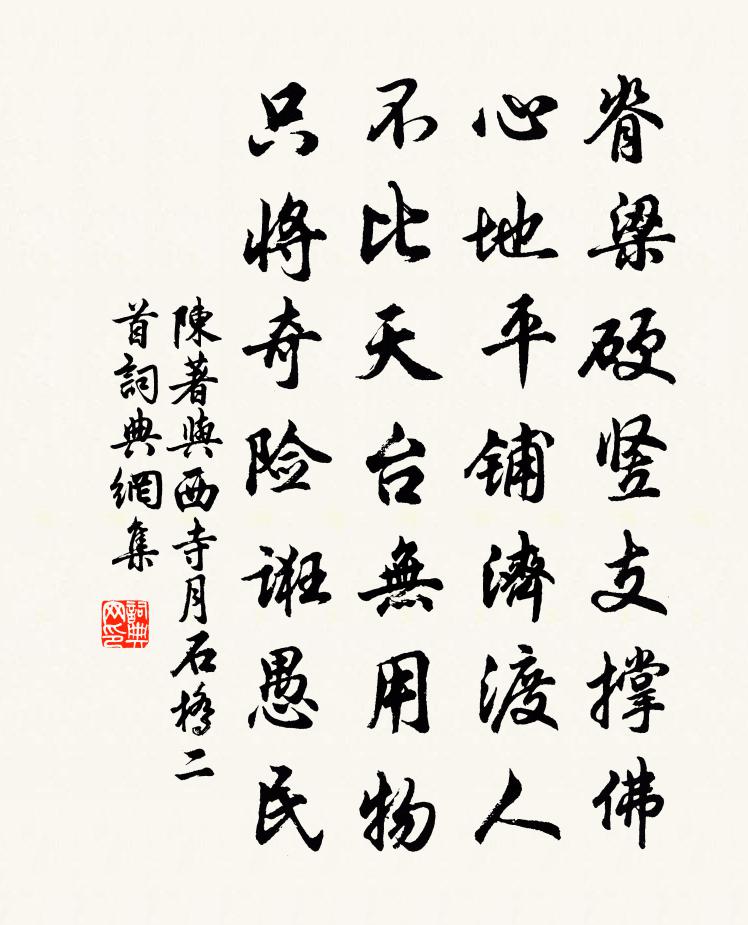 脊梁硬竖支撑佛
心地平铺濟渡人
不比天台無用物
只将奇险诳愚民
陳著與西寺月石橋二
首詞典網集
詞典
网印